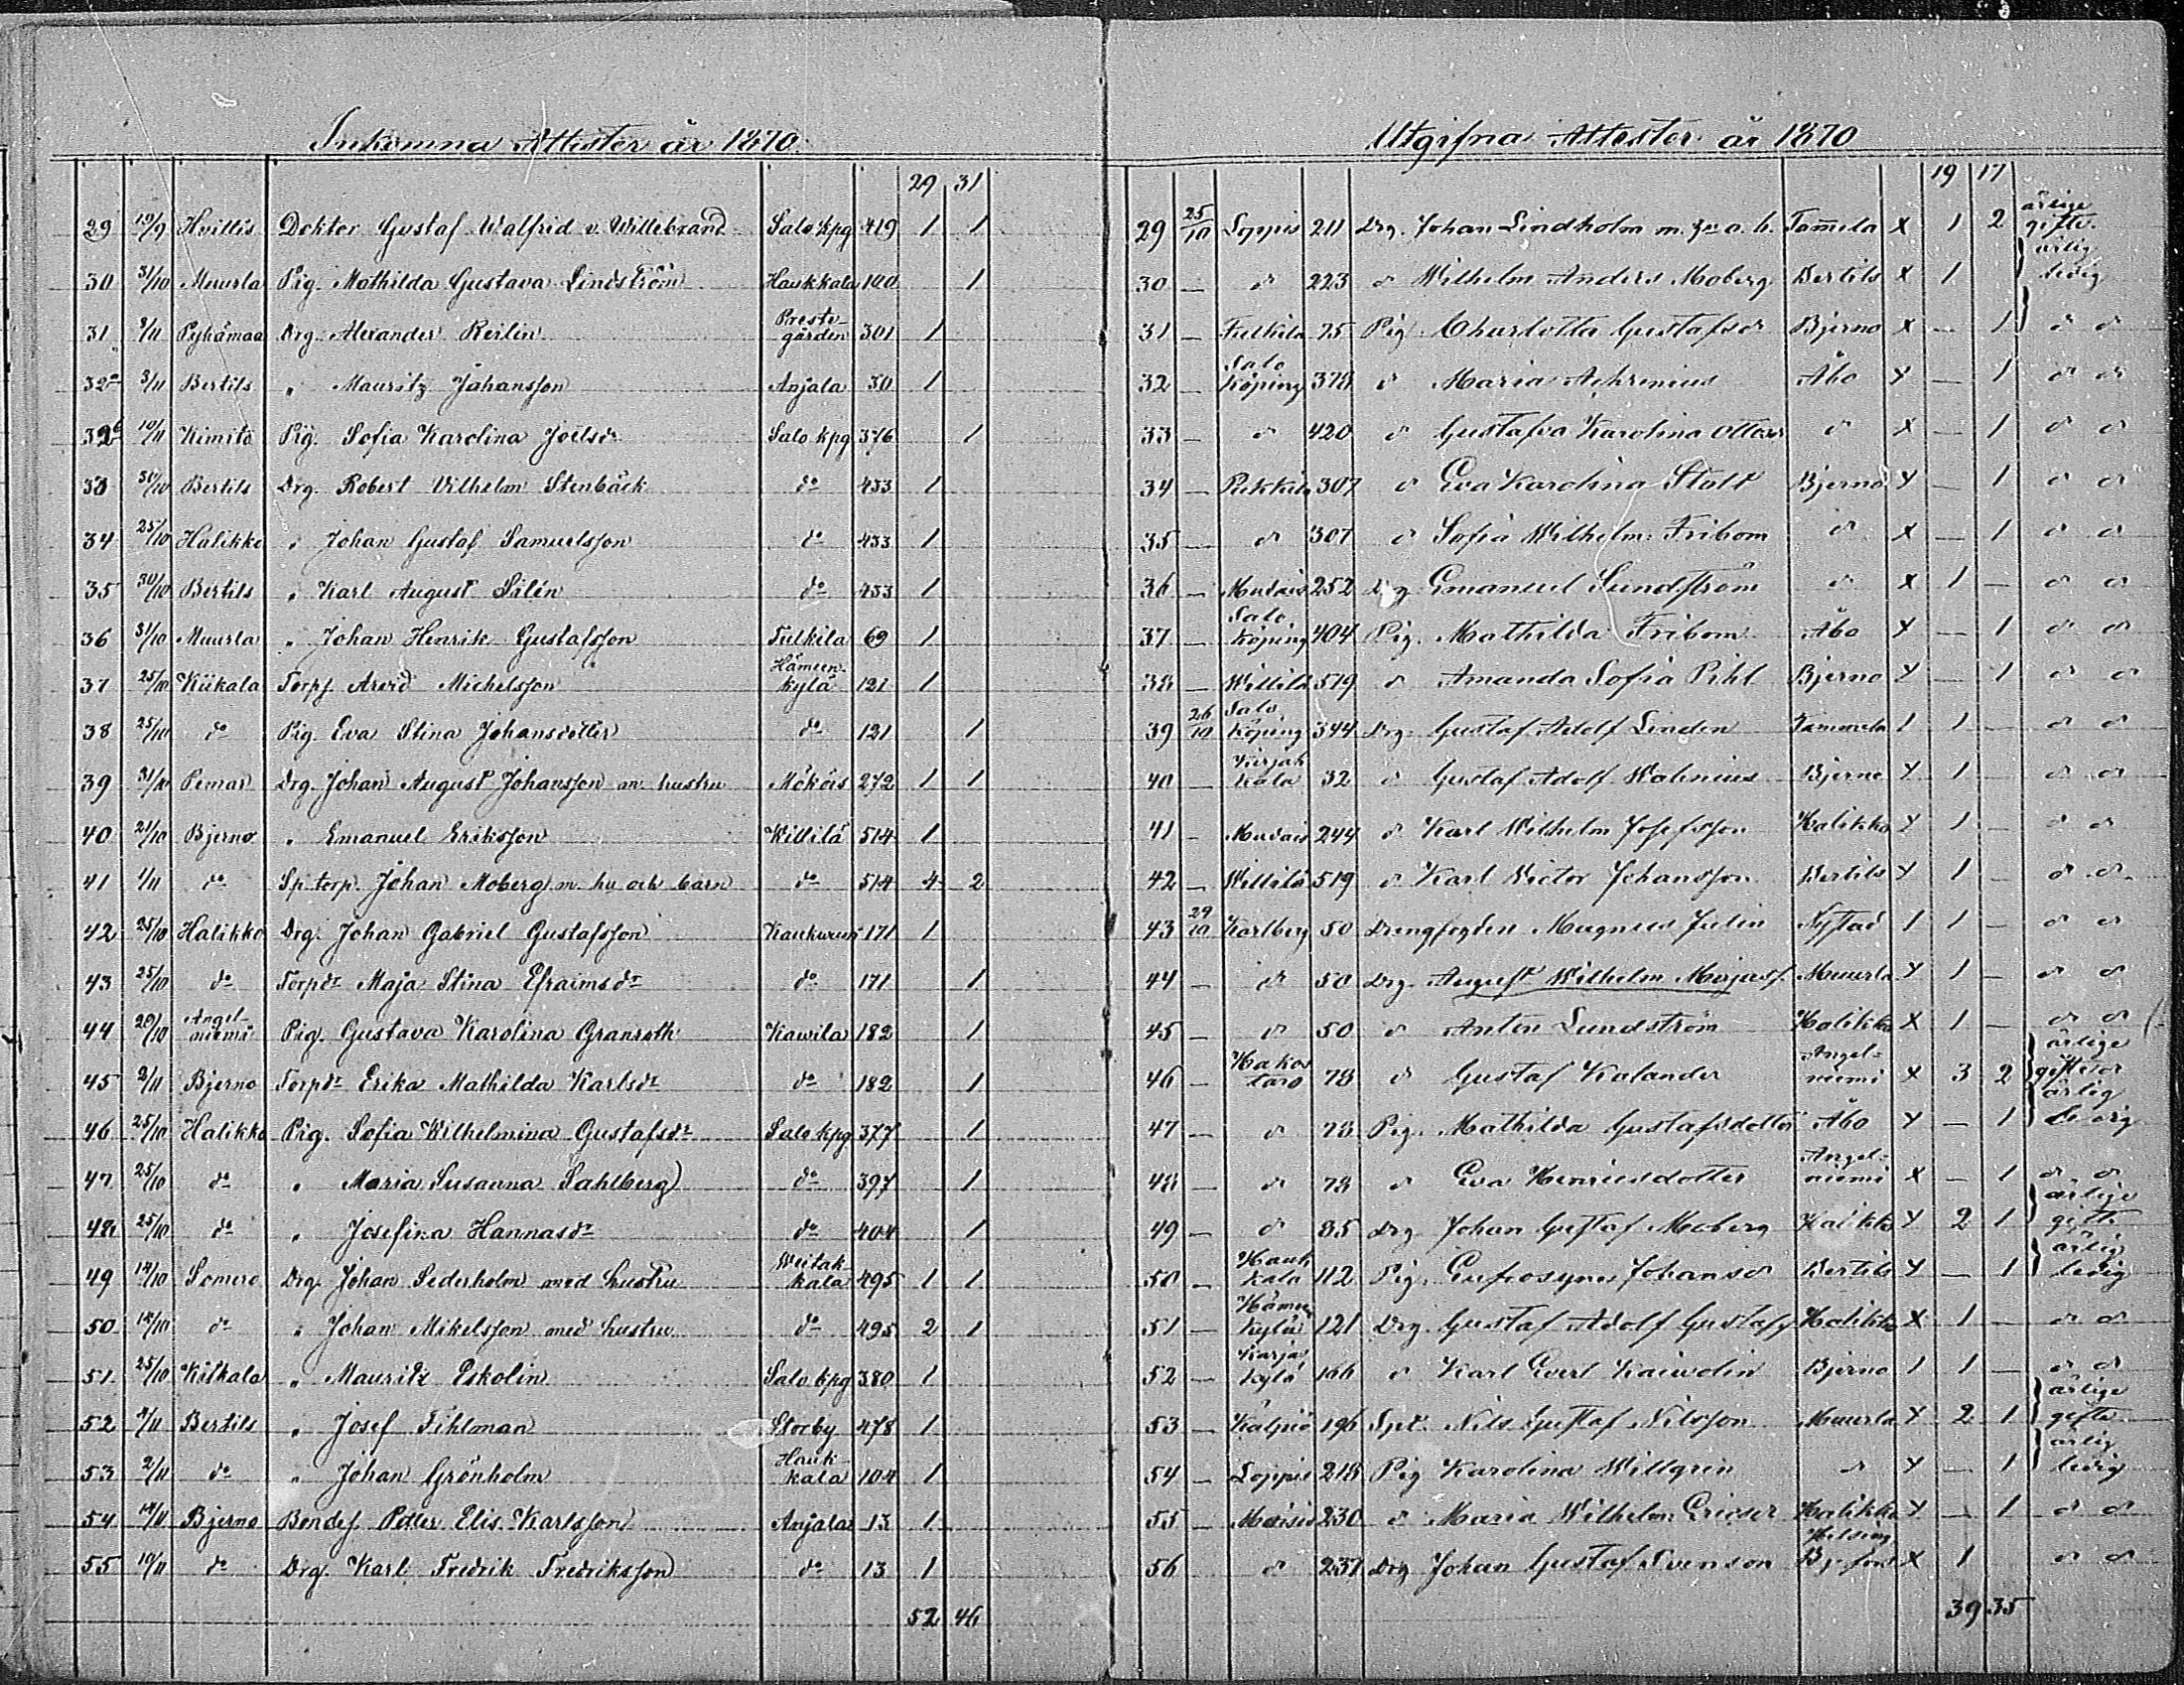 Inkomna Attester år 1870.
29 31
29 19/9 Hvittis Doktor Gustaf Walfrid v. Willebrand Salo kpg 419 1 1
30 31/10 Muurla Pig. Mathilda Gustava Lindström Haukkala 100 1
31 Pyhämaa Drg. Alexander Reilin Preste-gården 301 1
32a 3/11 Bertils " Mauritz Johansson Anjala 30 1
32b 10/11 Kimito Pig. Sofia Karolina Joelsdr Salo kpg 376 1
33 31/10 Bertils Drg. Robert Vilhelm Stenbäck do 433 1
34 25/10 Halikko " Johan Gustaf Samuelsson do 433 1
35 31/10 Bertils " Karl August Silén do 433 1
36 31/10 Muurla " Johan Henrik Gustafsson Tulkila 69 1
37 25/10 Kiikala Torpf. Arvid Michelsson Hämeen-kylä 121 1
38 25/10 do Pig. Eva Stina Johansdotter do 121 1
39 31/10 Pemar Drg. Johan August Johansson m. hustru Mököis 272 1 1
40 21/10 Bjerno " Emanuel Eriksson Willilä 514 1
41 1/11 do Sp. torp. Johan Moberg m. hu och barn do 514 4 2
42 25/10 Halikko Drg. Johan Gabriel Gustafsson 171 1
43 25/10 do Torpdr Maja Stina Efraimsdr do 171 1
44 20/10 Angel-niemi Pig. Gustava Karolina Granroth Kavila 182 1
45 2/11 Bjerno Torpdr Erika Mathilda Karlsdr do 182 1
46 25/10 Halikko Pig. Sofia Wilhelmina Gustafsdr Salo kpg 377 1
47 25/10 do " Maria Susanna Sahlberg do 397 1
48 25/10 do " Josefina Hannasdr do 404 1
49 14/10 Somero Drg. Johan Sederholm med hustru Veitak-kala 495 1 1
50 14/10 do " Johan Mikelsson med hustru do 495 2 1
51 25/10 Kiikala " Mauritz Eskolin Salo kpg 380 1
52 Bertils " Josef Fihlman Storby 478 1
53 2/11 do " Johan Grönholm Hauk-kala 104 1
54 14/11 Bjerno Bondes. Petter Elis Karlsson Anjala 13 1
55 10/11 do Drg. Karl Fredrik Fredriksson do 13 1
52 46
Utgifna Attester år 1870
19 17
29 25/10 Loppis 211 Drg. Johan Lindholm m. Tammela X 1 2 ärlige gifte.
30 — d 223 d Wilhelm Anders Moberg Bertils X 1 ärlig ledig
31 — Tulkila 25 Pig Charlotta Gustafsdr Bjerno X — 1 d d
32 — Salo Köping 378 d Maria Achrenius Åbo X — 1 d d
33 — d 420 d Gustafva Karolina Ottosdr d X — 1 d d
34 — 307 d Eva Karolina Stolt Bjerno X — 1 d d
35 — d 307 d Sofia Wilhelm. Fribom d X — 1 d d
36 — 252 Drg Emanuel Sundström d X 1 — d d
37 — Salo Köping 404 Pig. Mathilda Fribom Åbo X — 1 d d
38 — Willilä 519 d Amanda Sofia Pihl Bjerno X — 1 d d
39 26/10 Salo Köping 344 Drg. Gustaf Adolf Linden Tammela 1 1 — d d
40 — Kirjak-kala 32 d Gustaf Adolf Walenius Bjerno X 1 — d d
41 — 244 d Karl Wilhelm Josefsson Halikko X 1 — d d
42 — Willilä 519 d Karl Victor Johansson Bertils X 1 — d d
43 29/10 Karlberg 50 Drengfogden Magnus Julin Nystad 1 1 — d d
44 — d 50 Drg. August Wilhelm Majass. Muurla X 1 — d d
45 — d 50 d Anton Lundström Halikko X 1 — d d
46 — Hakos-taro 78 d Gustaf Kalander Angel-niemi X 3 2 ärlige gifte
47 — d 78 Pig. Mathilda Gustafsdotter Åbo X — 1 ärlig ledig
48 — d 78 d Eva Henricsdotter Angel-niemi X — 1 d d
49 — d 85 Drg Johan Gustaf Moberg Halikko X 2 1 ärlige gifte
50 — Hauk-kala 112 Pig. Eufrosyne Johansdr Bertils X — 1 ärlig ledig
51 — Hämeen-kylä 121 Drg. Gustaf Adolf Gustafs Halikko X 1 — d d
52 — Karjas-kylä 166 d Karl Evert Kaivolin Bjerno 1 1 — d d
53 — 196 Nils Gustaf Nilsson Muurla X 2 1 ärlige gifte
54 — Loppis 218 Pig Karolina Willgren d X — 1 ärlig ledig
55 — 230 d Maria Wilhelm. Ericsdr Halikko X — 1 d d
56 d 237 Drg Johan Gustaf Svenson Helsing X 1 d d
39 35